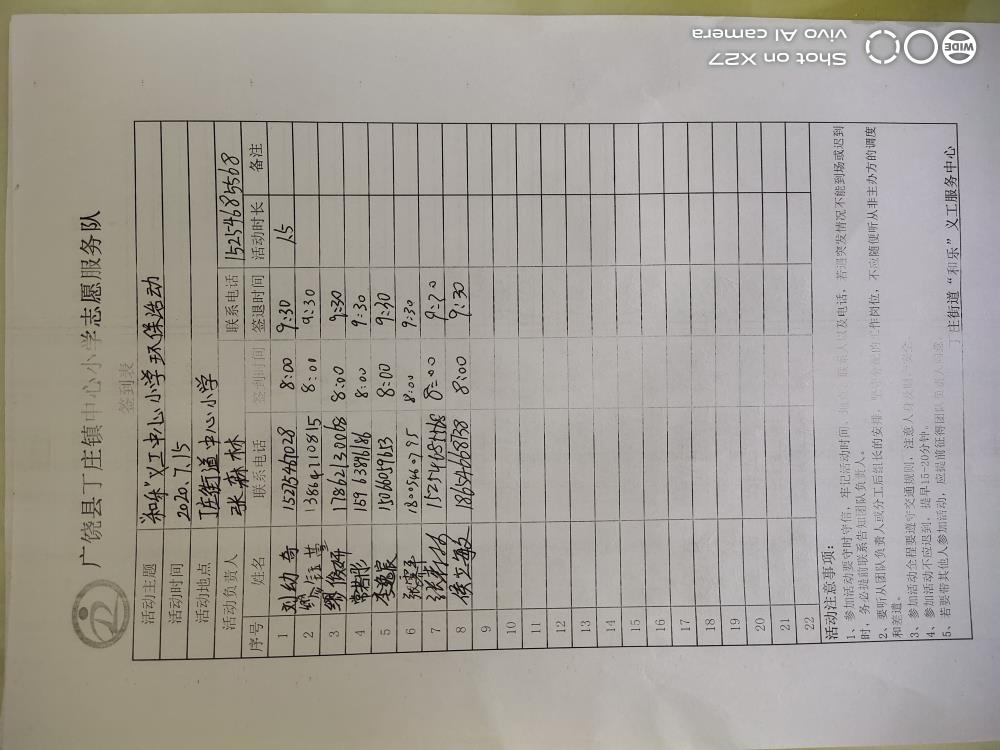 广饶县丁庄镇中心小学志愿服务队
签到表
活动主题 "和乐"义工中心小学环保活动
活动时间 2020.7.15
活动地点 丁庄街道中心小学
活动负责人 张森林 联系电话 15254685568
序号 姓名 联系电话 签到时间 签退时间 活动时长 备注
1 刘幼奇 15275461028 8:00 9:30 1.5
2 13864710815 8:00 9:30
3 缪俊妍 17862130068 8:00 9:30
4 15963896186 8:00 9:30
5 李逸宸 1506059653 8:00 9:30
6 18005467195 8:00 9:30
7 张森林 15254685568 8:00 9:30
8 18654668728 8:00 9:30
9
10
11
12
13
14
15
16
17
18
19
20
21
22
活动注意事项:
1、参加活动要守时守信,牢记活动时间、地点、联系人以及电话,若遇突发情况不能到场或迟到
时,务必提前联系告知团队负责人。
2、要听从团队负责人或分工后组长的安排,坚守分配的工作岗位,不应随便听从非主办方的调度
和差遣。
3、参加活动全程要遵守交通规则,注意人身及财产安全。
4、参加活动不应迟到,提早15-20分钟。
5、若要带其他人参加活动,应提前征得团队负责人同意。
丁庄街道"和乐"义工服务中心
Shot on X27
vivo AI camera
WIDE